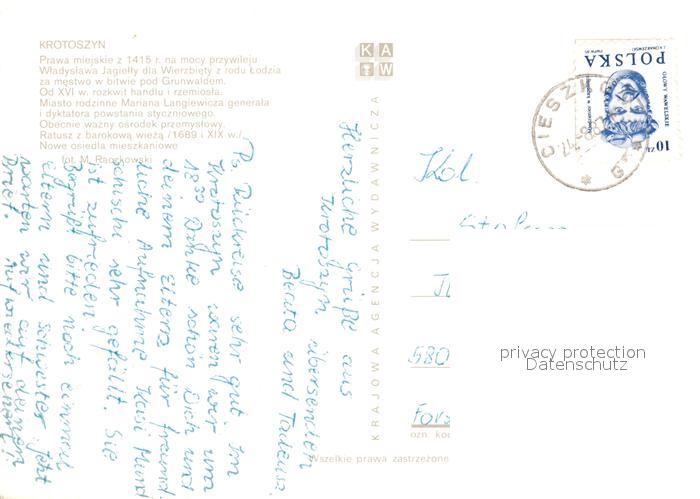 KROTOSZYN
Prawa miejskie z 1415 r. na mocy przywileju
Władysława Jagiełły dla Wierzbięty z rodu Łodzia
za męstwo w bitwie pod Grunwaldem.
Od XVI w. rozkwit handlu i rzemiosła.
Miasto rodzinne Mariana Langiewicza generała
i dyktatora powstania styczniowego.
Obecnie ważny ośrodek przemysłowy.
Ratusz z barokową wieżą /1689 i XIX w./
Nowe osiedla mieszkaniowe
fot. M. Raczkowski
KAW
KRAJOWA AGENCJA WYDAWNICZA
Herzliche Grüße aus
übersenden
Beata und Tadeusz.
Ps. Rückreise sehr gut. In
waren wir um
18 Danke schön Dich und
deinem Eltern für freund
liche Aufnahme Kasi Hund
sehr gefällt. Sie
ist zufrieden.
bitte noch einmal
Eltern und Schwester jetzt
warten wir auf deinen
Brief.
POLSKA
GŁOWY WAWELSKIE
10 ZŁ
CIESZK
580
ozn. kod
Wszelkie prawa zastrzeżone
privacy protection
Datenschutz